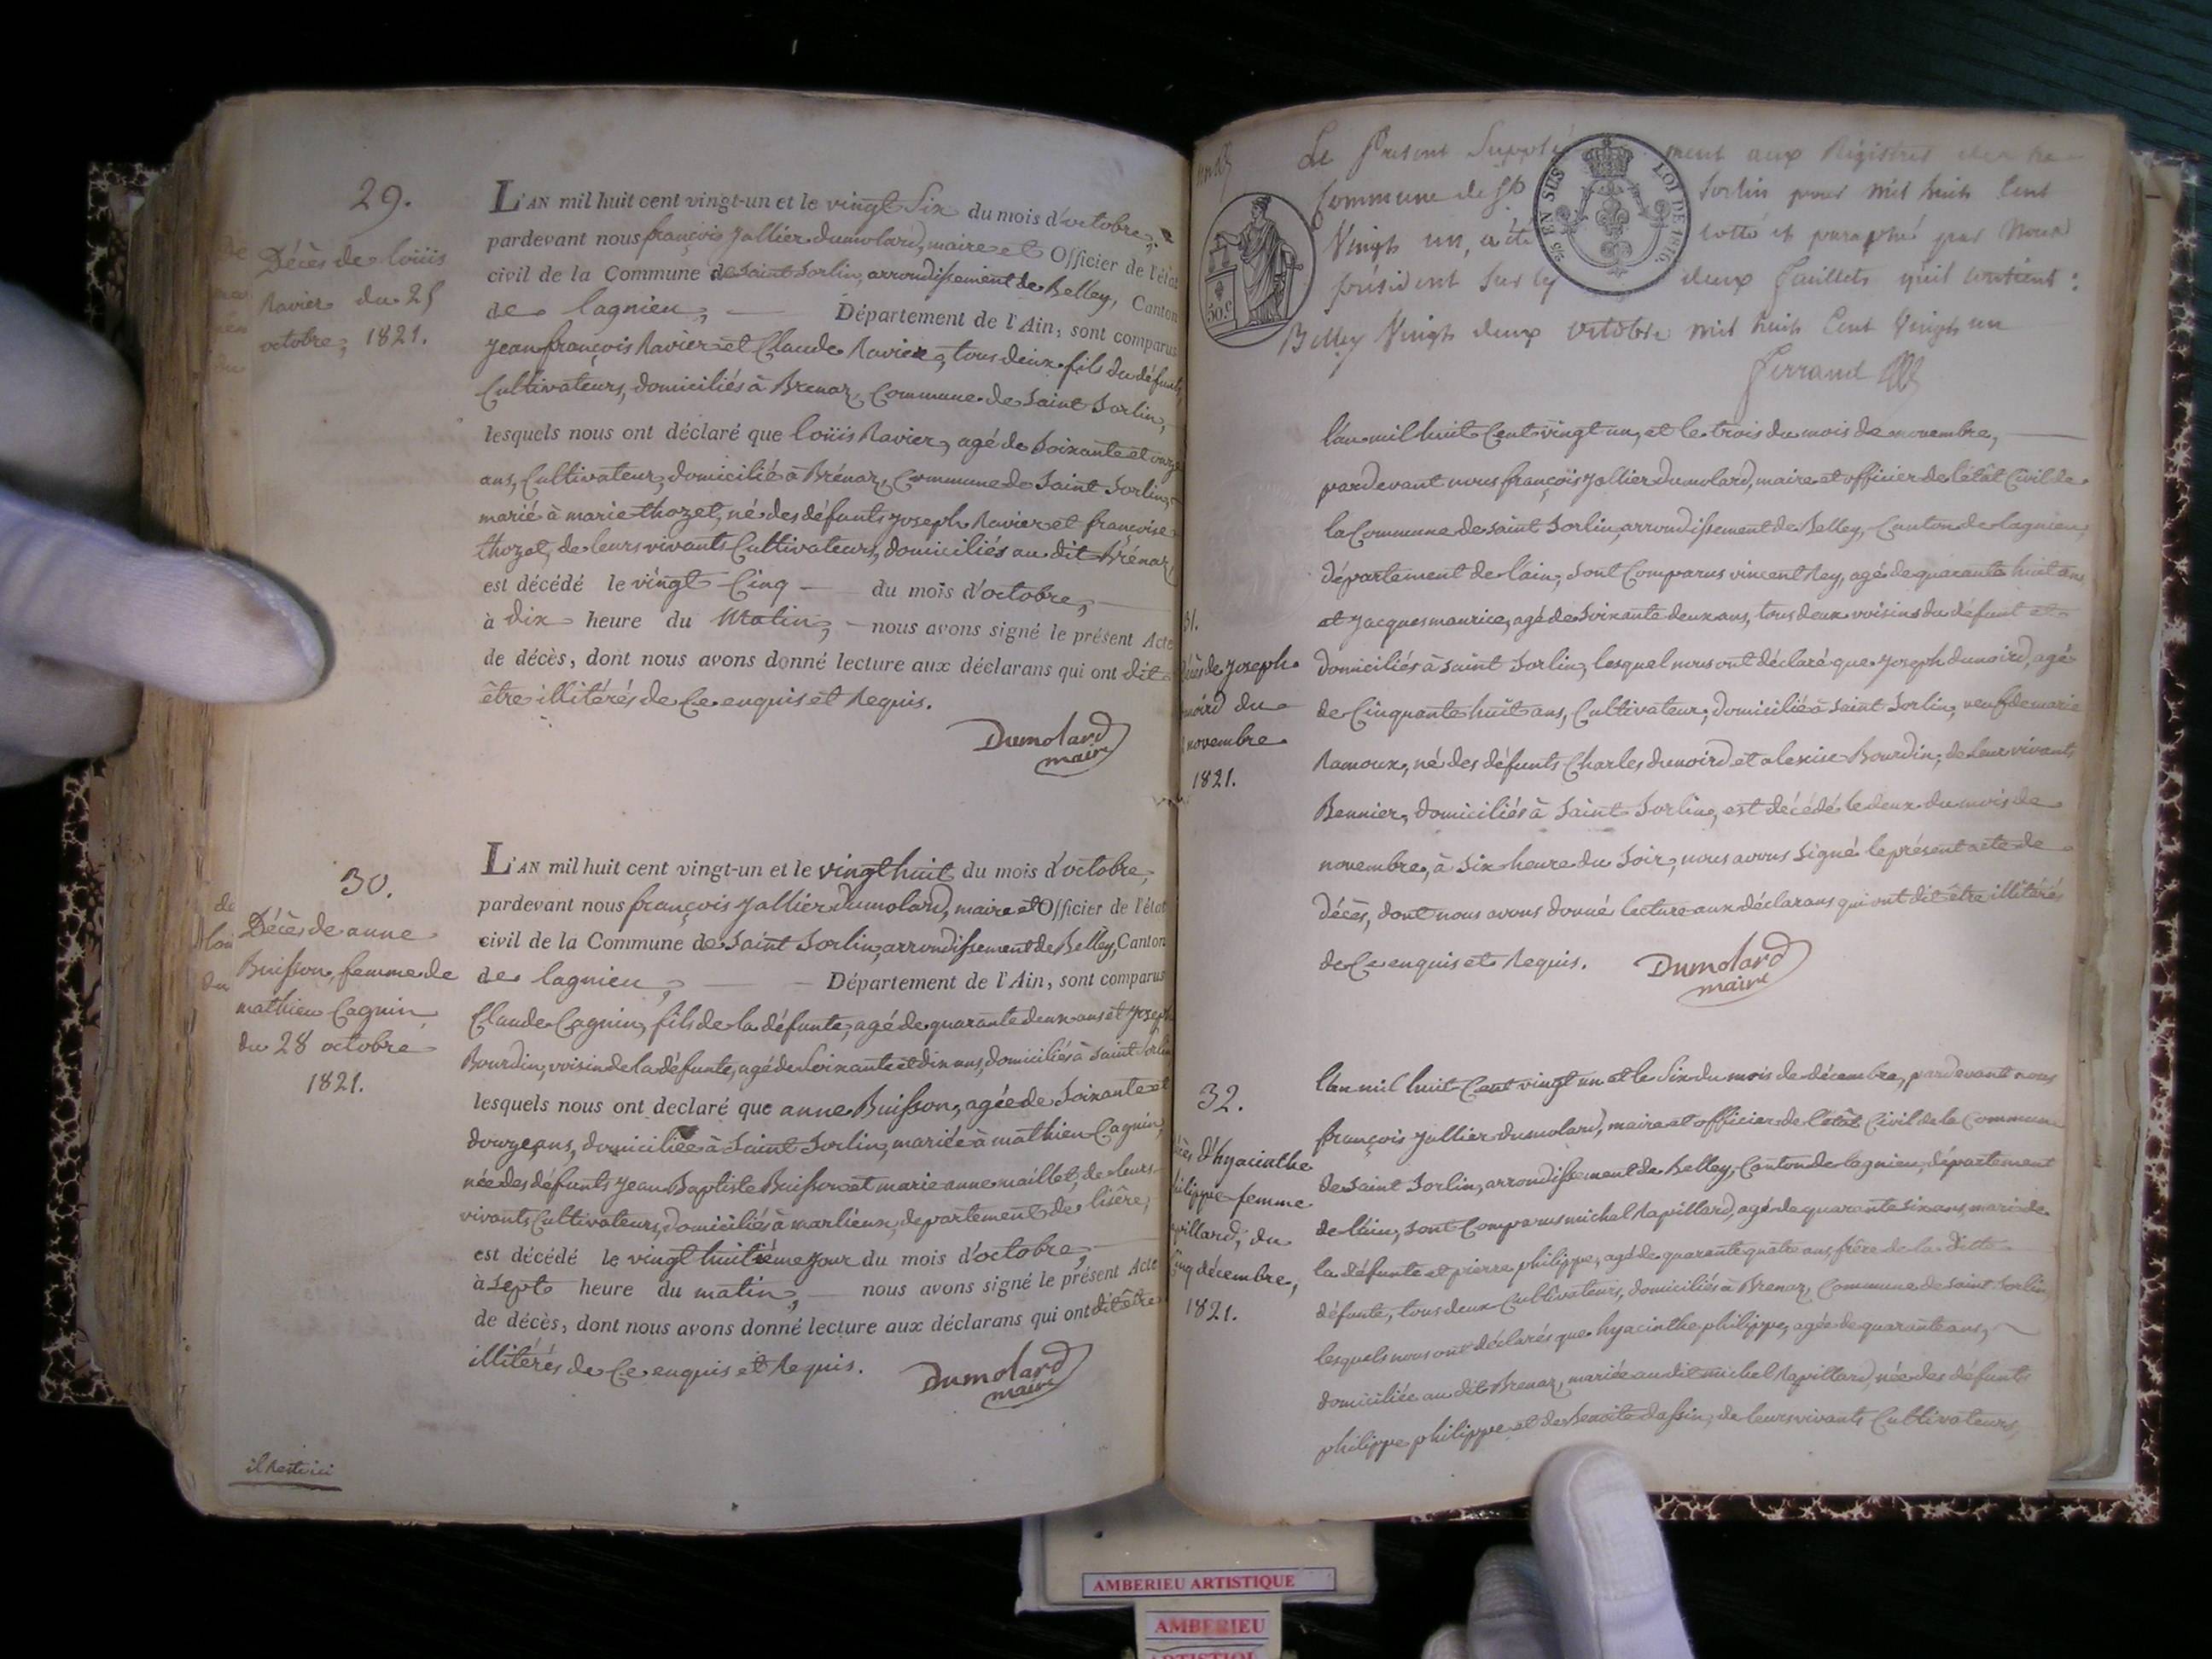 29.
Décès de loüis
Ravier du 25
octobre, 1821.
L'AN mil huit cent vingt-un et le vingt Six du mois d'octobre,
pardevant nous françois Jallier dumolard, maire et Officier de l'état
civil de la Commune de Saint Sorlin, arrondissement de Belley, Canton
de lagnieu, Département de l'Ain, sont comparus
Jean françois Ravier et Claude Ravier, tous deux fils du défunt,
Cultivateurs, domiciliés à Brenaz, Commune de Saint Sorlin,
lesquels nous ont déclaré que loüis Ravier, agé de Soixante et onze
ans, Cultivateur, domicilié à Brénaz, Commune de Saint Sorlin,
marié à marie thozet, né des défunts Joseph Ravier et françoise
thozet, de leurs vivants Cultivateurs, domiciliés au dit Brénaz,
est décédé le vingt Cinq du mois d'octobre,
à dix heure du Matin, nous avons signé le présent Acte
de décès, dont nous avons donné lecture aux déclarans qui ont dit
être illitérés de Ce enquis et Requis.
Dumolard
maire
30.
Décès de anne
Buisson, femme de
mathieu Cagnin
du 28 octobre
1821.
L'AN mil huit cent vingt-un et le vingt huit du mois d'octobre,
pardevant nous françois Jallier dumolard, maire et Officier de l'état
civil de la Commune de Saint Sorlin, arrondissement de Belley, Canton
de lagnieu, Département de l'Ain, sont comparus
Claude Cagnin, fils de la défunte, agé de quarante deux ans et Joseph
Bourdin, voisin de la défunte, agé de Soixante et dix ans, domiciliés à Saint Sorlin
lesquels nous ont declaré que anne Buisson, agée de Soixante et
douze ans, domiciliée à Saint Sorlin, mariée à mathieu Cagnin,
née des défunts Jean Baptiste Buisson et marie anne maillet, de leurs
vivants Cultivateurs, domiciliés à marlieux, département de lisère,
est décédé le vingt huitième jour du mois d'octobre,
à Sept heure du matin, nous avons signé le présent Acte
de décès, dont nous avons donné lecture aux déclarans qui ont dit être
illitérés de Ce enquis et Requis.
Dumolard
maire
il Reste ici
Le Présent Supplément aux Régistres de la
Commune de St Sorlin pour mil huit Cent
Vingt un, a été cotté et paraphé par Nous
président sur les deux feuillets qu'il contient :
Belley Vingt deux octobre mil huit Cent Vingt un
Ferrand
EN SUS
LOI DE 1816.
50.c
l'an mil huit Cent vingt un, et le trois du mois de novembre,
pardevant nous françois Jallier dumolard, maire et officier de l'état Civil de
la Commune de Saint Sorlin, arrondissement de Belley, Canton de lagnieu,
département de l'ain, sont Comparus vincent Rey, agé de quarante huit ans
et Jacques maurice, agé de Soixante deux ans, tous deux voisins du défunt et
31.
décès de Joseph
du
novembre
1821.
domiciliés à Saint Sorlin, lesquel nous ont déclaré que Joseph dunoird, agé
de Cinquante huit ans, Cultivateur, domicilié à Saint Sorlin, veuf de marie
Ramoux, né des défunts Charles dunoird et alexise Bourdin, de leur vivants
domiciliés à Saint Sorlin, est décédé le deux du mois de
novembre, à Six heure du Soir, nous avons Signé le présent acte de
décès, dont nous avons donné lecture aux déclarans qui ont dit être illitérés
de Ce enquis et Requis.
Dumolard
maire
32.
d'hyacinthe
philippe femme
du
cinq décembre,
1821.
l'an mil huit Cent vingt un et le Six du mois de décembre, pardevant nous
françois Jallier dumolard, maire et officier de l'état Civil de la Commune
de Saint Sorlin, arrondissement de Belley, Canton de lagnieu, département
de l'ain, sont Comparus michel Rapillard, agé de quarante six ans, mari de
la défunte et pierre philippe, agé de quarante quatre ans frère de la ditte
défunte, tous deux Cultivateurs, domiciliés à Brenaz, Commune de Saint Sorlin
lesquels nous ont déclarés que hyacinthe philippe, agée de quarante ans,
domiciliée au dit Brenaz, mariée au dit michel Rapillard, née des défunts
philippe philippe et de Benoite dassin, de leurs vivants Cultivateurs,
AMBERIEU ARTISTIQUE
AMBERIEU
ARTISTIQUE